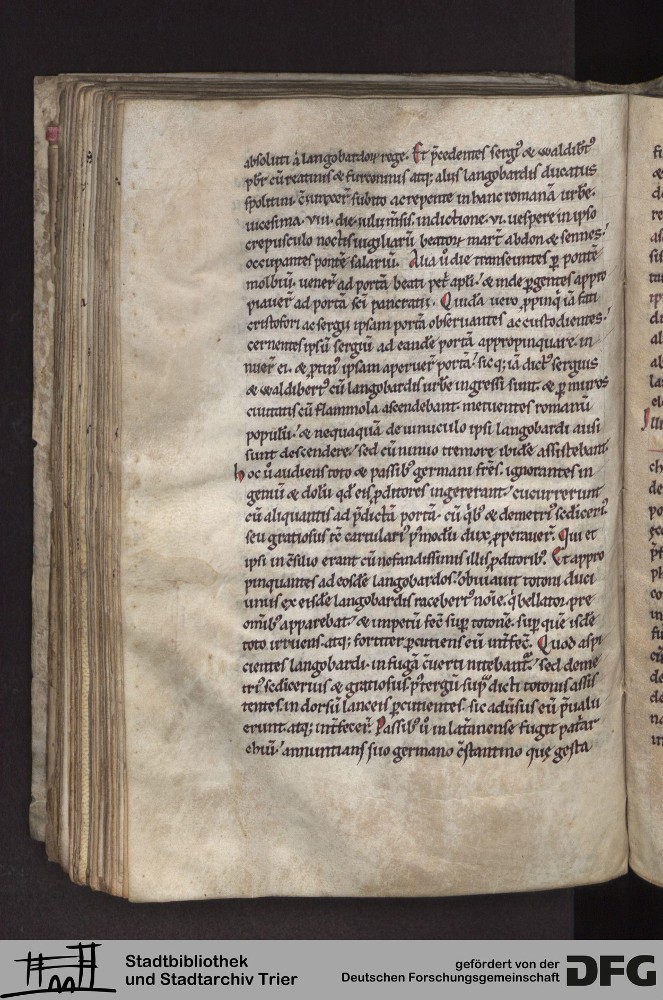 absoluti a langobardoꝝ rege. Et p̄cedentes sergiꝰ & waldib̄tꝰ
pbr̄ cū reatinis & furconinis atq; aliis langobardis ducatus
spolitini. subito ac repente in hanc romanā urbē.
uicesima. viii. die iulii m̄sis. indictione. vi. uespere in ipso
crepusculo noctis uigiliarū beatoꝝ mart̄ abdon & sennes.
occupantes pontē salariū. Alia ū die transeuntes ꝑ pontē
molbiū. uener̄ ad portā beati pet̄ apl̄i. & inde ꝑgentes appro
piauer̄ ad portā sc̄i pancratii. Quidā uero ꝓpinq̄ iā fati
cristofori ac sergii ipsam portā obseruantes ac custodientes.
cernentes ipsū sergiū ad eandē portā appropinquare. in
nuer̄ ei. & ꝓtinꝰ ipsam aperuer̄ portā. sicq; iā dictꝰ sergius
& waldibertꝰ cū langobardis urbē ingressi sunt. & ꝑ muros
ciuitatis cū flammola ascendebant. metuentes romanū
populū. & nequaquā de ipsi langobardi ausi
sunt descendere. sed cū nimio tremore ibidē assistebant.
hoc ū audiens toto & passibꝰ germani fr̄es. ignorantes in
geniū & dolū qd̄ eis ꝓditores ingererant. cucurrerunt
cū aliquantis ad p̄dictā portā. cū q̄bꝰ & demetriꝰ sc̄diceriꝰ
seu gratiosus tc̄ cartulariꝰ p̄modū dux ꝓperauer̄. Qui et
ipsi in c̄silio erant cū nefandissimis illis ꝓditoribꝰ. Et appro
pinquantes ad eosdē langobardos. obuiauit totoni duci
unus ex eisdē langobardis racebertꝰ noīe. q̄ bellator pre
om̄ibꝰ apparebat. & impetū fec̄ sup̄ totonē. sup̄ quē isdē
toto irruens. atq; fortiter ꝑcutiens eū int̄fec̄. Quod aspi
cientes langobardi. in fugā c̄uerti nitebant᷑. sed deme
triꝰ sc̄dicerius & gratiosus. p̄tergū sup̄dicti totonis assis
tentes. in dorsū lanceis ꝑcutientes. sic adūsus eū p̄ualu
erunt. atq; int̄fecer̄. Passibꝰ ū in lat̄anense fugit pat̄ar
chiū. annuntians suo germano c̄stantino que gesta
Stadtbibliothek
und Stadtarchiv Trier
gefördert von der
Deutschen Forschungsgemeinschaft
DFG